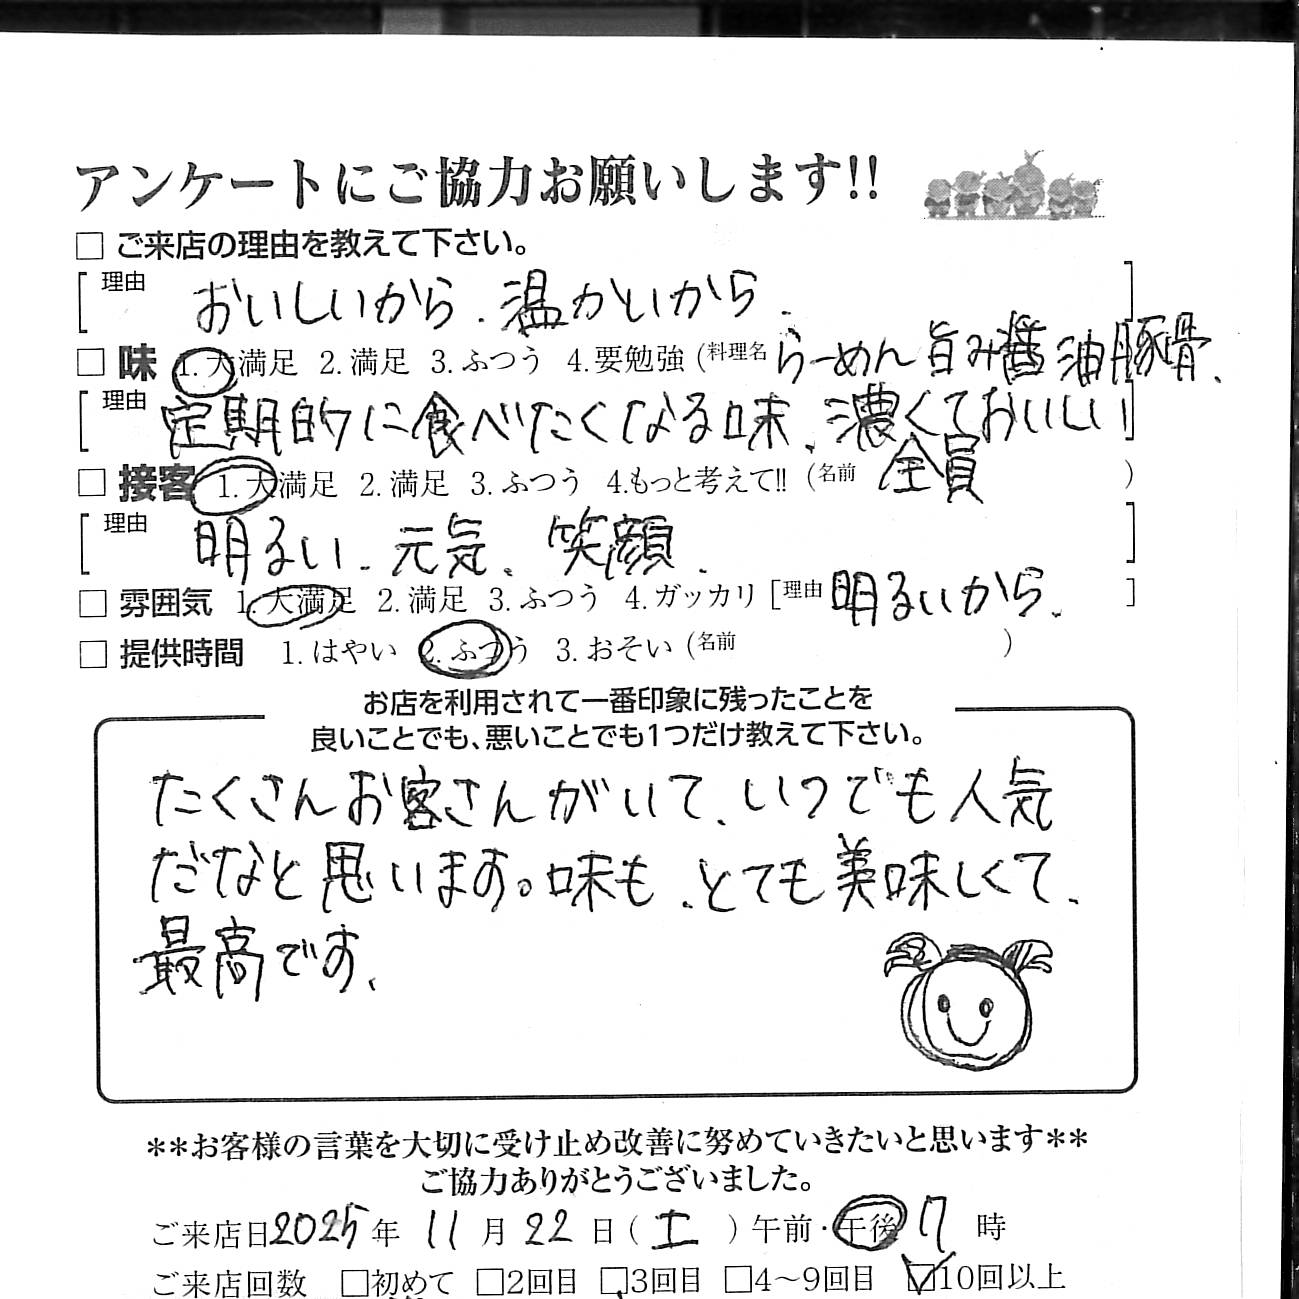 アンケートにご協力お願いします!!
□ ご来店の理由を教えて下さい。
[理由 おいしいから、温かいから、]
□ 味 1.大満足 2.満足 3.ふつう 4.要勉強 (料理名 らーめん 旨み醤油豚骨、
[理由 定期的に食べたくなる味、濃くておいしい]
□ 接客 1.大満足 2.満足 3.ふつう 4.もっと考えて!! (名前 全員 )
[理由 明るい、元気、笑顔、]
□ 雰囲気 1.大満足 2.満足 3.ふつう 4.ガッカリ [理由 明るいから、]
□ 提供時間 1.はやい 2.ふつう 3.おそい (名前 )
お店を利用されて一番印象に残ったことを
良いことでも、悪いことでも1つだけ教えて下さい。
たくさんお客さんがいて、いつでも人気
だなと思います。味も、とても美味しくて、
最高です、
**お客様の言葉を大切に受け止め改善に努めていきたいと思います**
ご協力ありがとうございました。
ご来店日 2025年 11月 22日 (土) 午前・午後 7時
ご来店回数 □初めて □2回目 □3回目 □4〜9回目 ☑10回以上